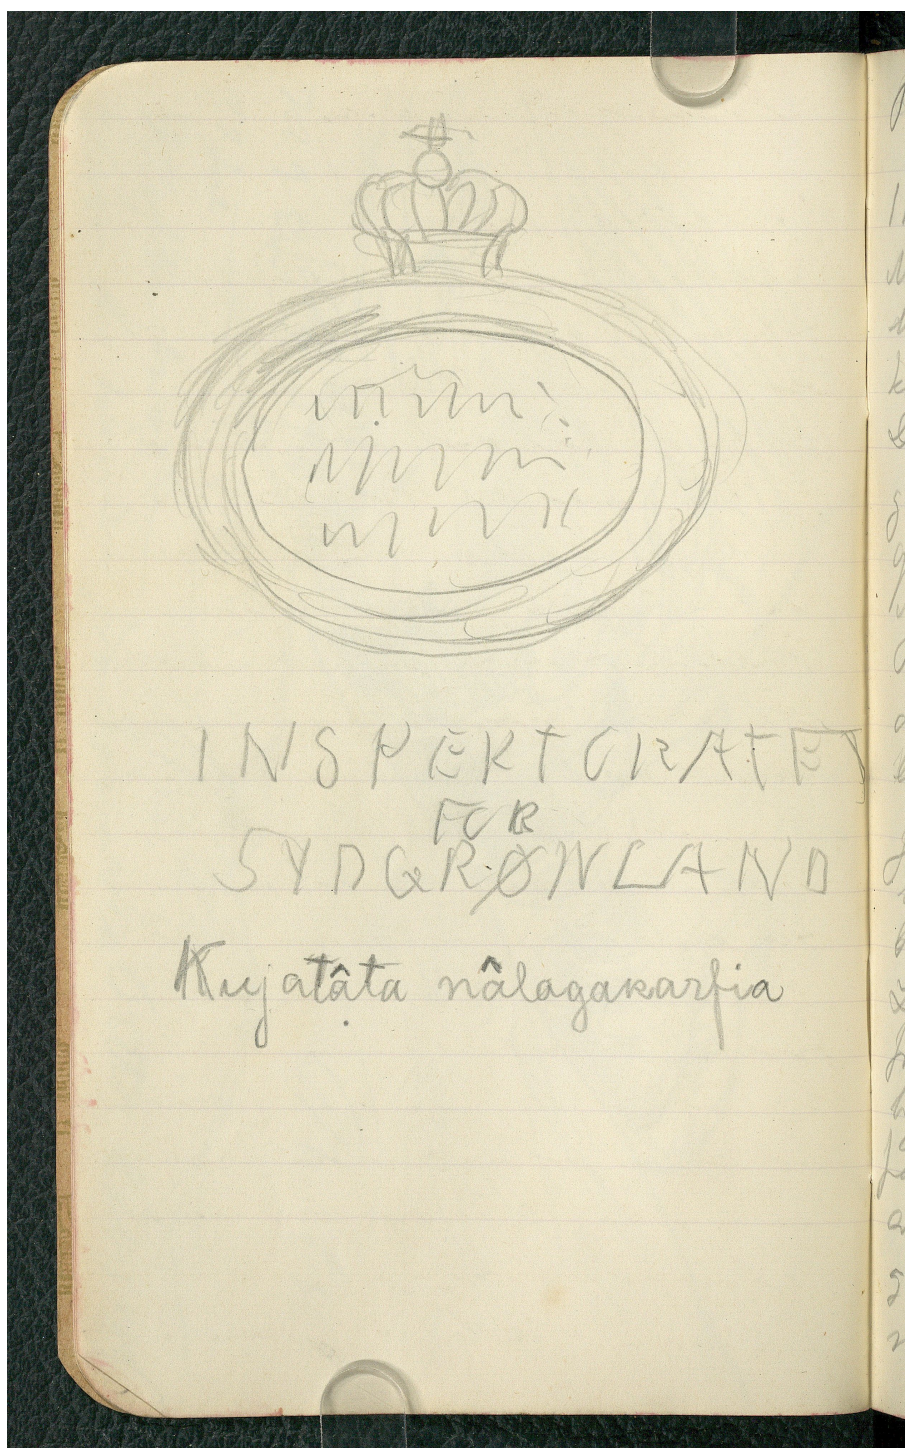 INSPEKTORATET
FOR
SYDGRØNLAND
Kujatâta nâlagaĸarfia